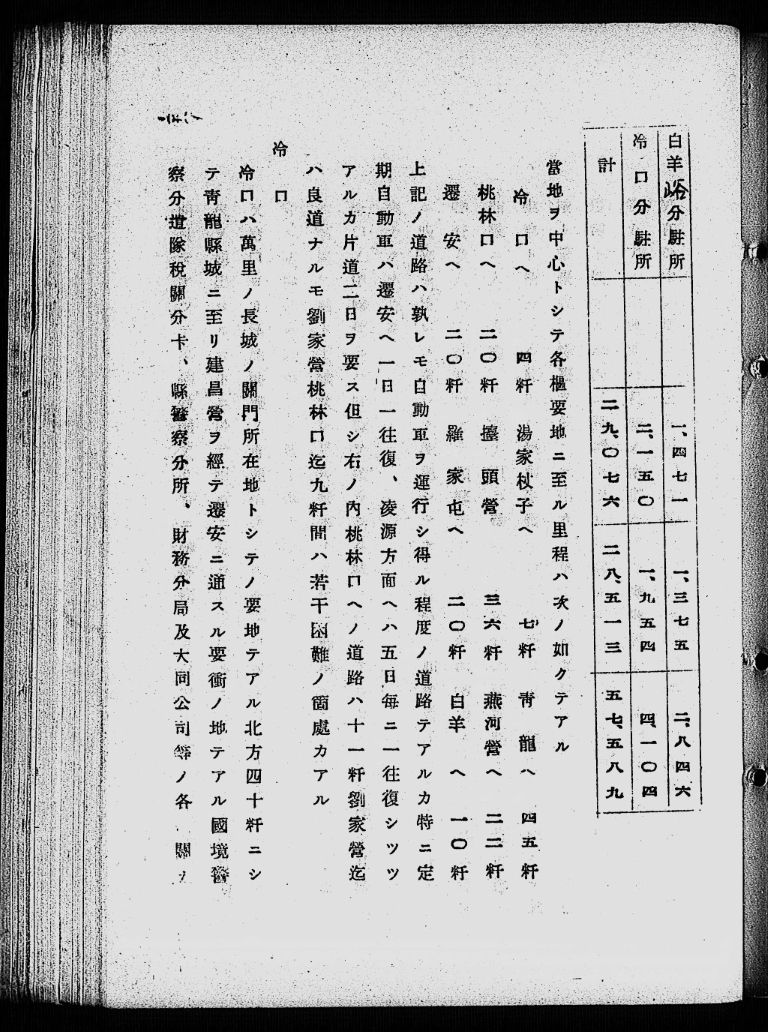 白羊峪分駐所 一、四七一 一、三七五 二、八四六
冷口分駐所 二、一五〇 一、九五四 四、一〇四
計 二九、〇七六 二八、五一三 五七、五八九
當地ヲ中心トシテ各樞要地ニ至ル里程ハ次ノ如クテアル
冷口ヘ 四粁 湯家杖子ヘ 七粁 靑龍ヘ 四五粁
桃林口ヘ 二〇粁 擡頭營 三六粁 燕河營ヘ 二二粁
遷安ヘ 二〇粁 羅家屯ヘ 二〇粁 白羊ヘ 一〇粁
上記ノ道路ハ孰レモ自動車ヲ運行シ得ル程度ノ道路テアルカ特ニ定
期自動車ハ遷安ヘ一日一往復、凌源方面ヘハ五日每ニ一往復シツツ
アルカ片道二日ヲ要ス但シ右ノ內桃林口ヘノ道路ハ十一粁劉家營迄
ハ良道ナルモ劉家營桃林口迄九粁間ハ若干困難ノ箇處カアル
冷口
冷口ハ萬里ノ長城ノ關門所在地トシテノ要地テアル北方四十粁ニシ
テ靑龍縣城ニ至リ建昌營ヲ經テ遷安ニ通スル要衝ノ地テアル國境警
察分遣隊稅關分卡、縣警察分所、財務分局及大同公司等ノ各關